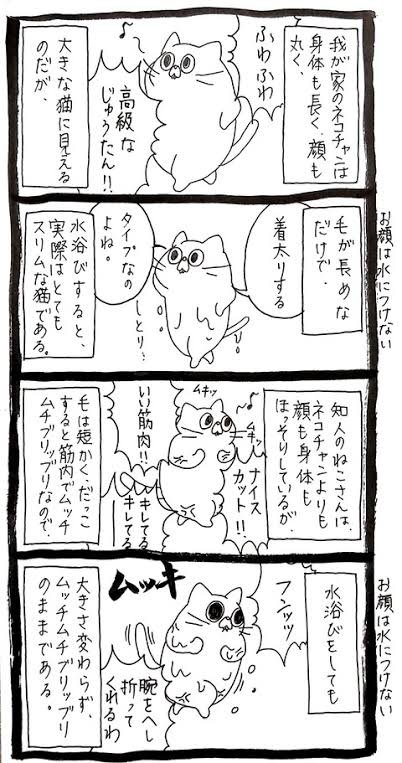 我が家のネコチャンは
身体も長く、顔も
丸く、
ふわふわ
♪
高級な
じゅうたん!!
大きな猫に見える
のだが、
お顔は水につけない
毛が長めな
だけで、
着太りする
タイプなの
よね。
しとり…
水浴びすると、
実際はとても
スリムな猫である。
知人のねこさんは、
ネコチャンよりも
顔も身体も
ほっそりしているが、
♪
ムキッ
ムキッ
ナイス
カット!!
いい筋肉!!
キレてる
キレてる
毛は短かく、だっこ
すると筋肉でムッチ
ムチブリッブリなので、
お顔は水につけない
水浴びをしても
フンッッ
ムッキ
腕をへし
折って
くれるわ
大きさ変わらず、
ムッチムチブリッブリ
のままである。